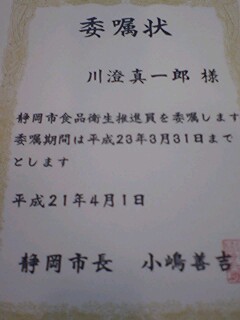 委嘱状
川澄真一郎 様
静岡市食品衛生推進員を委嘱します
委嘱期間は平成23年3月31日まで
とします
平成21年4月1日
静岡市長 小嶋善吉